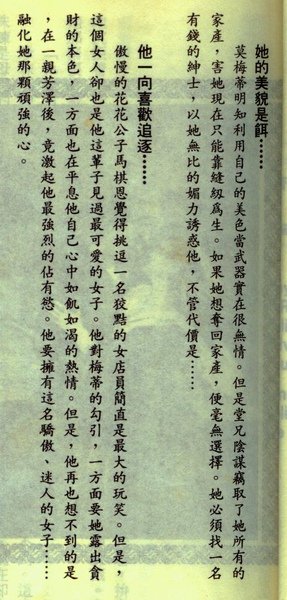 她的美貌是餌……
莫梅蒂明知利用自己的美色當武器實在很無情。但是堂兄陰謀竊取了她所有的
家產,害她現在只能靠縫紉為生。如果她想奪回家產,便毫無選擇。她必須找一名
有錢的紳士,以她無比的媚力誘惑他,不管代價是……
他一向喜歡追逐……
傲慢的花花公子馬棋恩覺得挑逗一名狡黠的女店員簡直是最大的玩笑。但是,
這個女人卻也是他這輩子見過最可愛的女子。他對梅蒂的勾引,一方面要她露出貪
財的本色,一方面也在平息他自己心中如飢如渴的熱情。但是,他再也想不到的是
,在一親芳澤後,竟激起他最強烈的佔有慾。他要擁有這名驕傲、迷人的女子……
融化她那顆頑強的心。